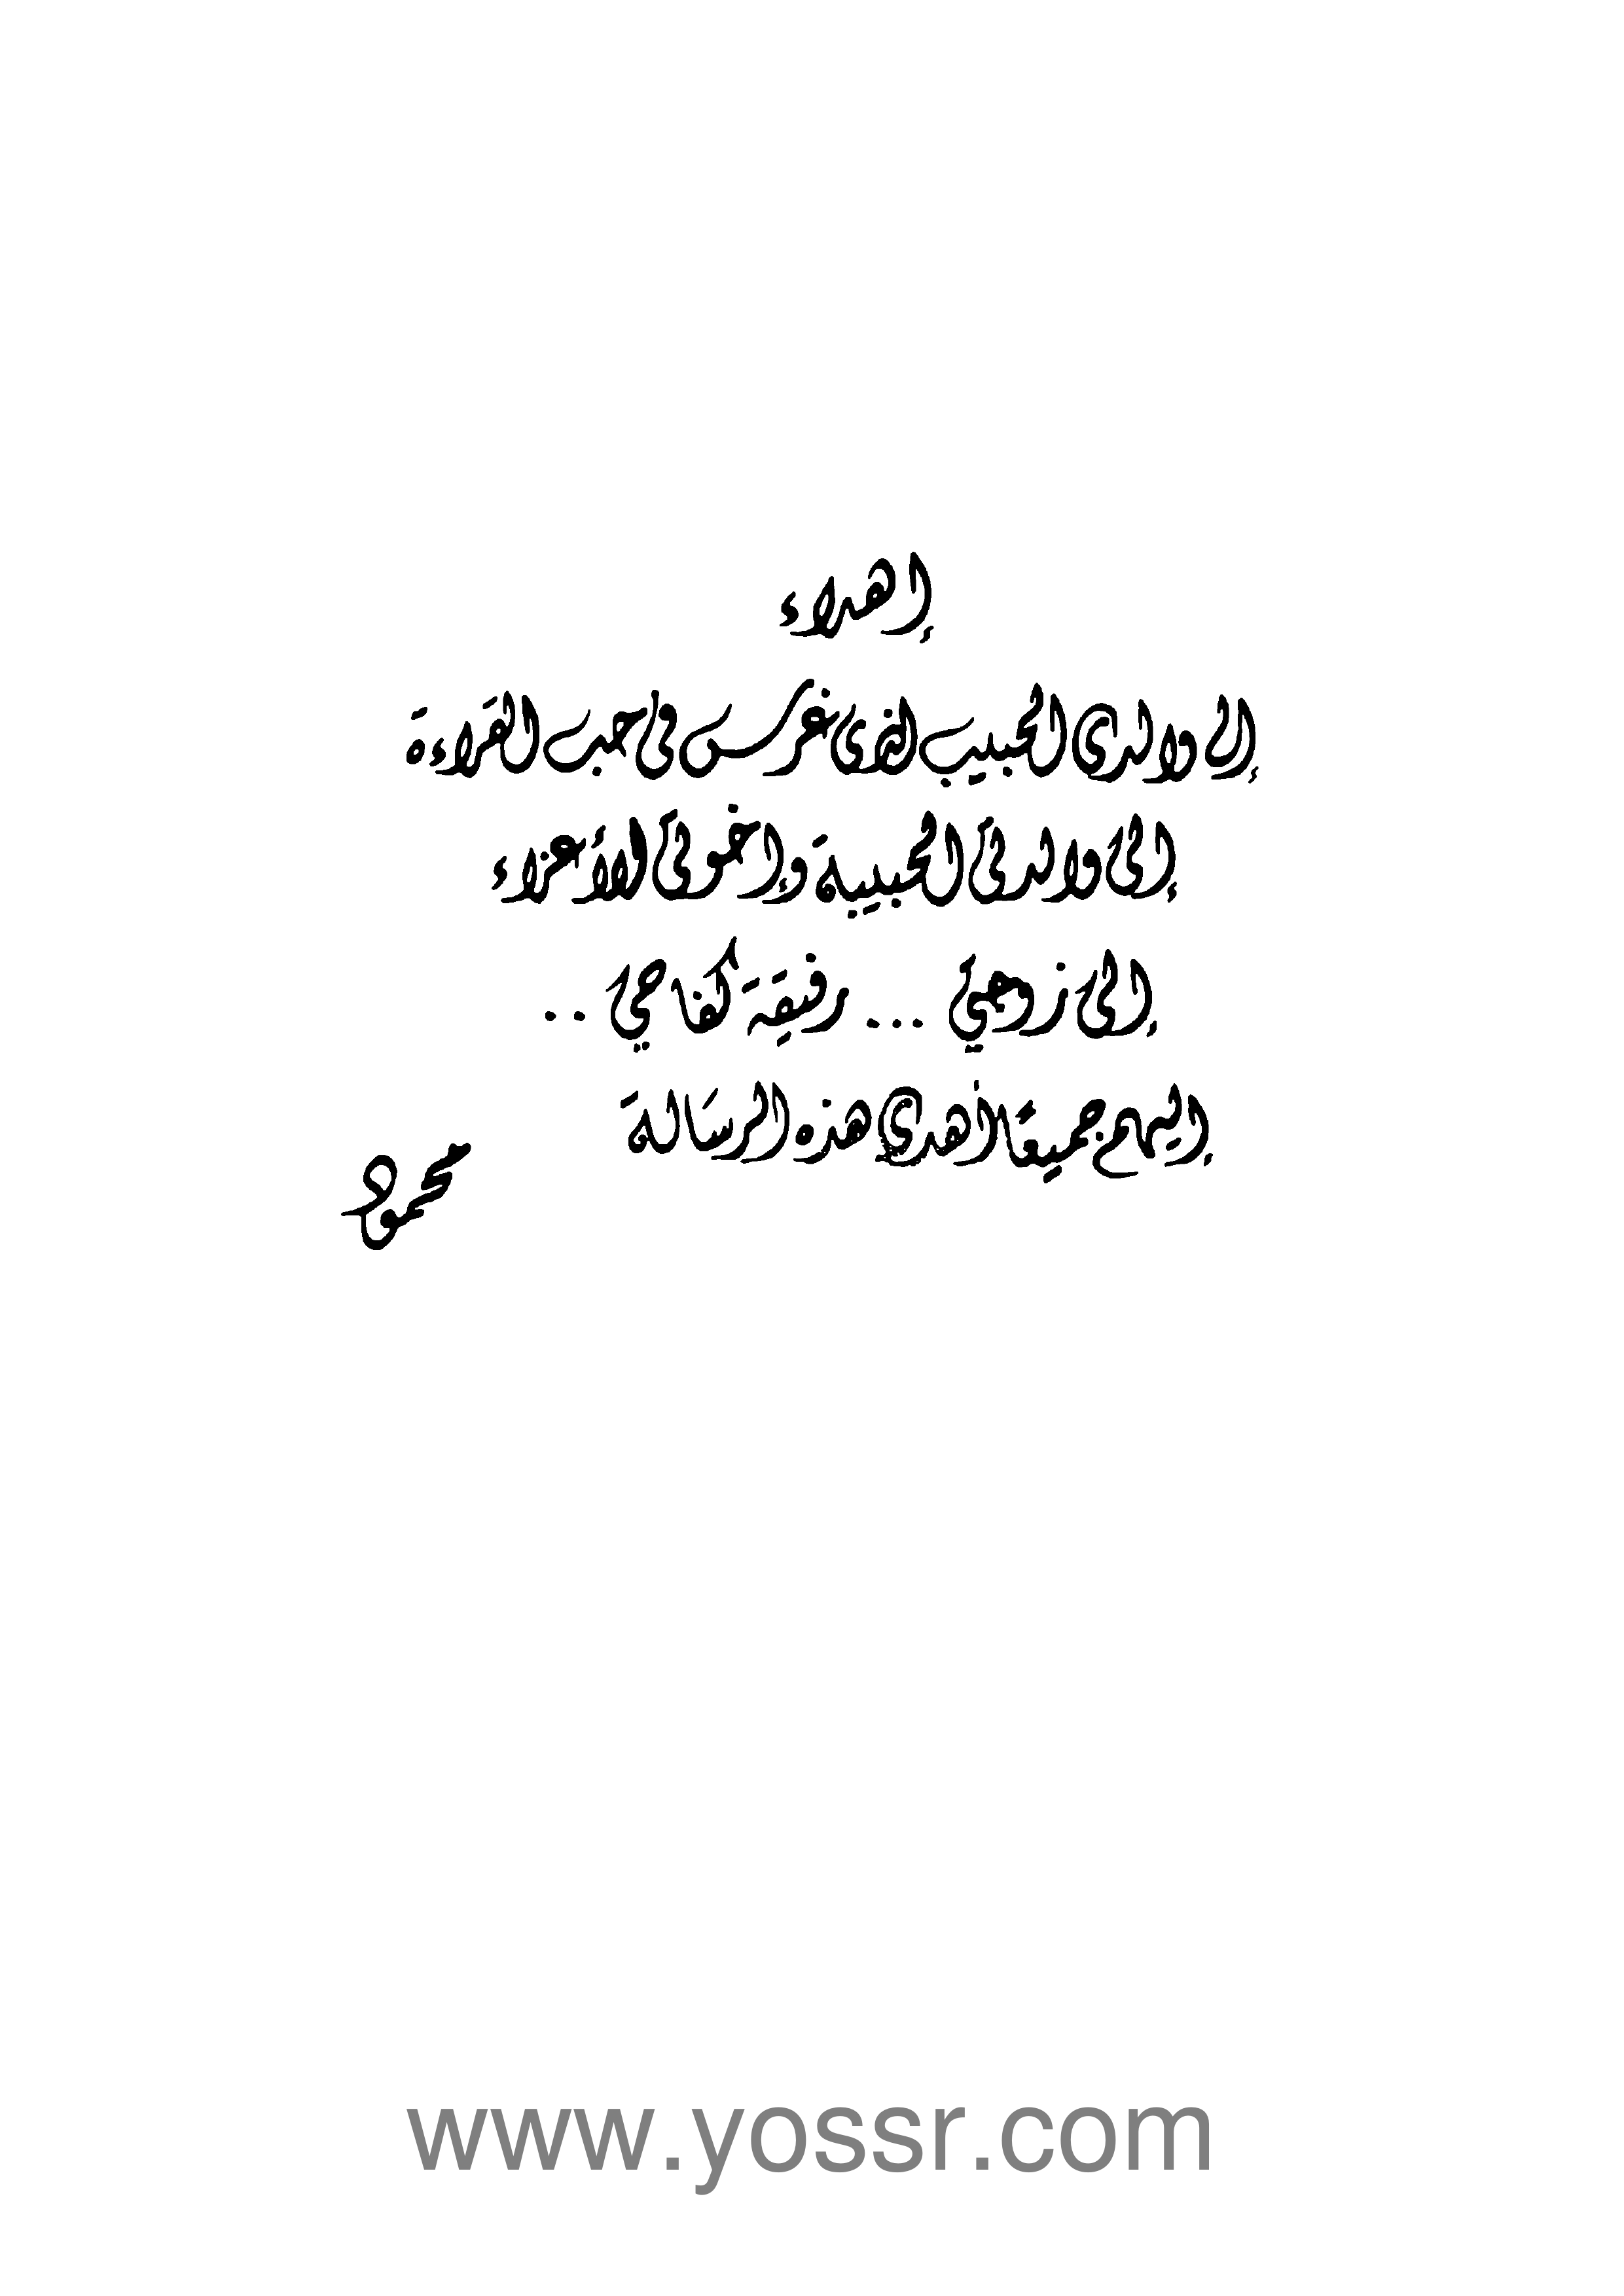 إهداء
إلى والدى الحبيب الذى غرس فى حب القراءة
إلى والدتى الحبيبة وإخوتى الأعزاء
إلى زوجتي ... رفيقة كفاحي ..
إليهم جميعًا أهدي هذه الرسالة
محمود
www.yossr.com